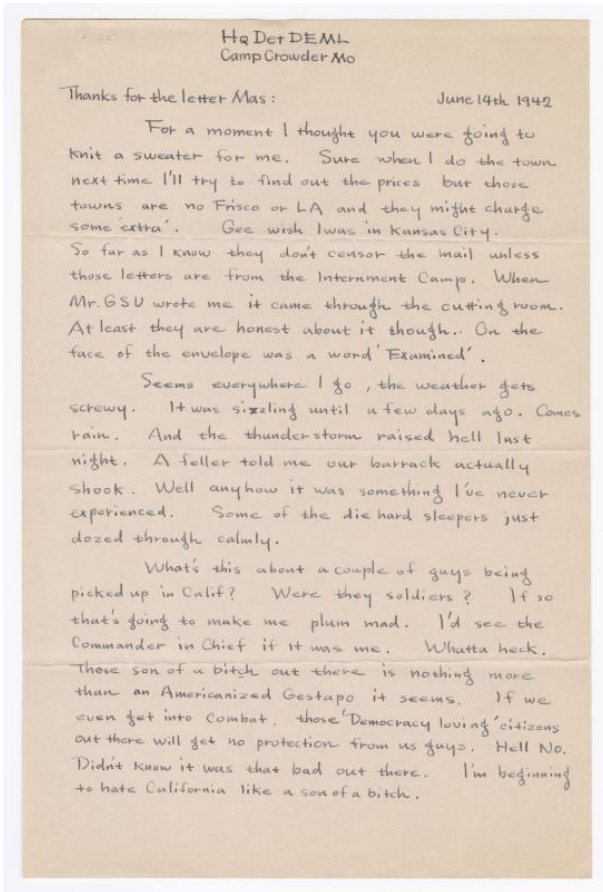 Hq Det DEML
Camp Crowder Mo
Thanks for the letter Mas: June 14th 1942
For a moment I thought you were going to
knit a sweater for me. Sure when I do the town
next time I'll try to find out the prices but those
towns are no Frisco or LA and they might charge
some 'extra'. Gee wish I was in Kansas City.
So far as I know they don't censor the mail unless
those letters are from the Internment Camp. When
Mr. GSU wrote me it came through the cutting room.
At least they are honest about it though. On the
face of the envelope was a word 'Examined'.
Seems everywhere I go, the weather gets
screwy. It was sizzling until a few days ago. Comes
rain. And the thunderstorm raised hell last
night. A feller told me our barrack actually
shook. Well anyhow it was something I've never
experienced. Some of the die hard sleepers just
dozed through calmly.
What's this about a couple of guys being
picked up in Calif? Were they soldiers? If so
that's going to make me plum mad. I'd see the
Commander in Chief if it was me. Whatta heck.
Those son of a bitch out there is nothing more
than an Americanized Gestapo it seems. If we
even get into Combat, those 'Democracy loving' citizens
out there will get no protection from us guys. Hell No.
Didn't know it was that bad out there. I'm beginning
to hate California like a son of a bitch.